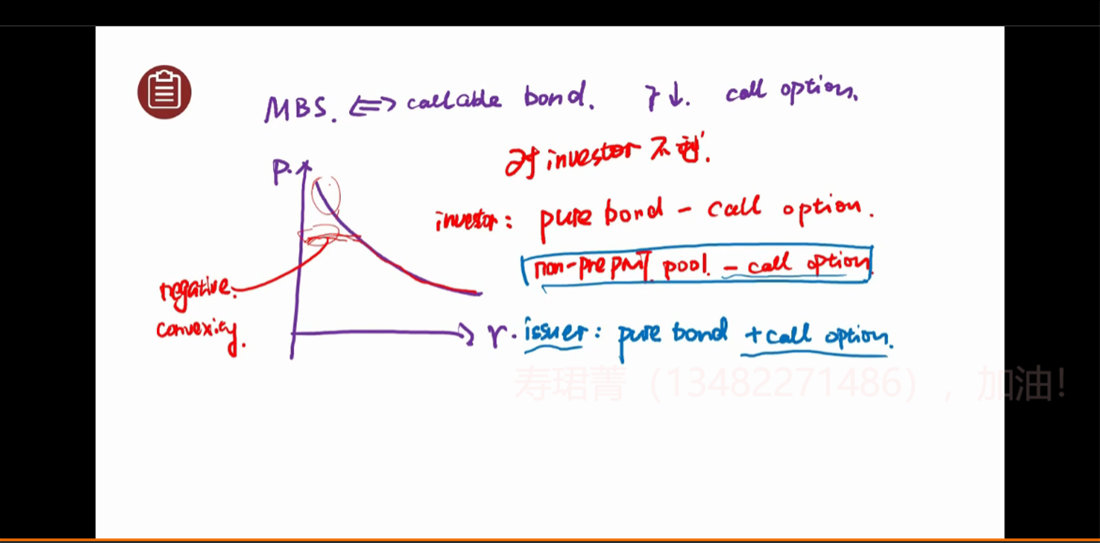 MBS. <=> callable bond. r↓. call option.
P.
对 investor 不利.
investor: pure bond - call option.
non-prepmt. pool. - call option
negative.
convexity.
r.
issuer: pure bond + call option.
寿珺菁（13482271486），加油！